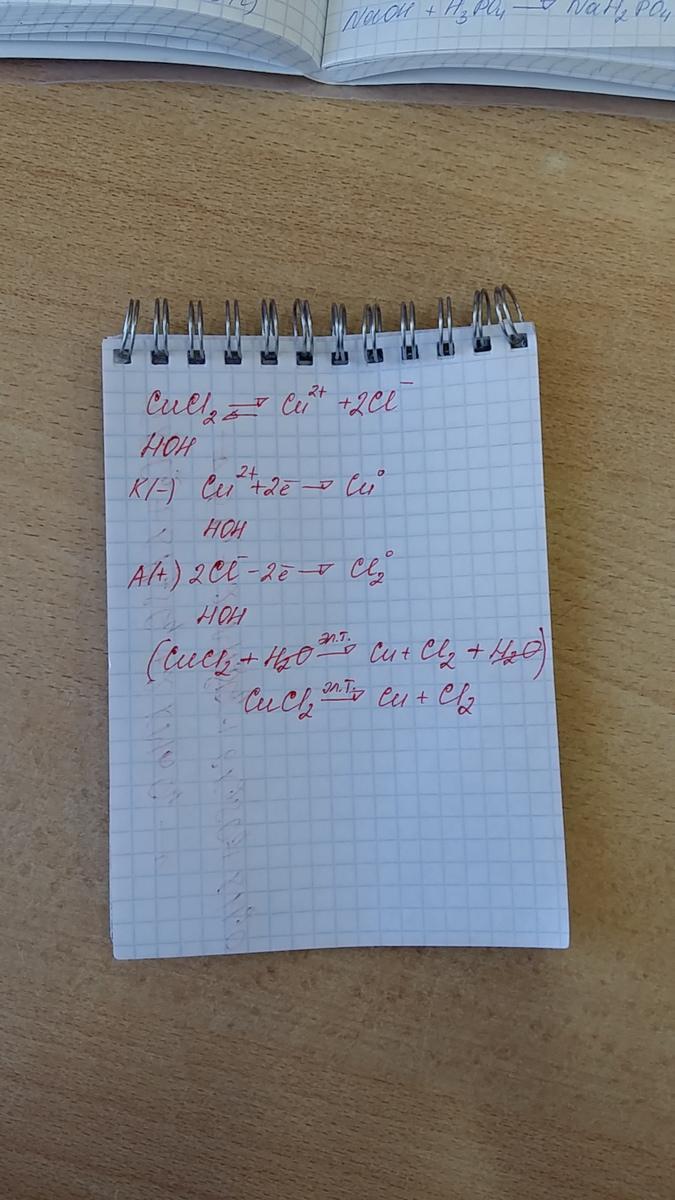 NaOH + H₃PO₄ → NaH₂PO₄
CuCl₂ ⇄ Cu²⁺ + 2Cl⁻
HOH
K(-) Cu²⁺+2ē → Cu⁰
HOH
A(+) 2Cl⁻-2ē → Cl₂⁰
HOH
(CuCl₂ + H₂O эл.т.→ Cu + Cl₂ + H₂O)
CuCl₂ эл.т.→ Cu + Cl₂